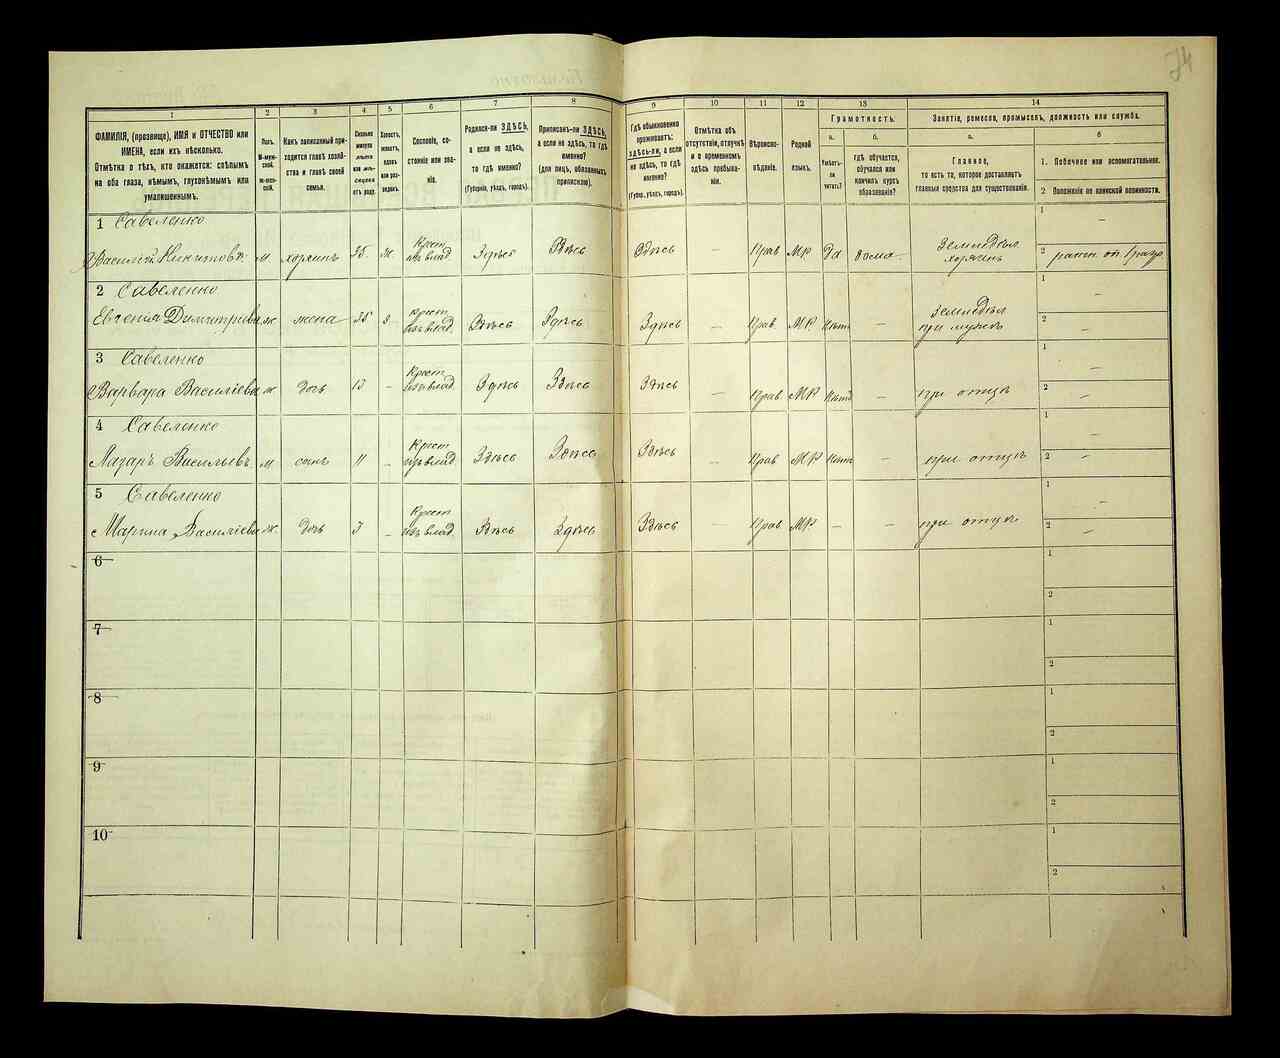 74
1 2 3 4 5 6 7 8 9 10 11 12 13 14
ФАМИЛІЯ, (прозвище), ИМЯ и ОТЧЕСТВО или
ИМЕНА, если ихъ нѣсколько.
Отмѣтка о тѣхъ, кто окажется: слѣпымъ
на оба глаза, нѣмымъ, глухонѣмымъ или
умалишеннымъ.
Полъ.
М-муж-
ской.
Ж-жен-
скій.
Какъ записанный при-
ходится главѣ хозяй-
ства и главѣ своей
семьи.
Сколько
минуло
лѣтъ
или мѣ-
сяцевъ
отъ роду.
Холостъ,
женатъ,
вдовъ
или раз-
веденъ.
Сословіе, со-
стояніе или зва-
ніе.
Родился-ли ЗДѢСЬ,
а если не здѣсь,
то гдѣ именно?
(Губернія, уѣздъ, городъ).
Приписанъ-ли ЗДѢСЬ,
а если не здѣсь, то гдѣ
именно?
(для лицъ, обязанныхъ
припискою).
Гдѣ обыкновенно
проживаетъ:
здѣсь-ли, а если
не здѣсь, то гдѣ
именно?
(Губер., уѣздъ, городъ).
Отмѣтка объ
отсутствіи, отлучкѣ
и о временномъ
здѣсь пребыва-
ніи.
Вѣроиспо-
вѣданіе.
Родной
языкъ.
Грамотность.
а.
Умѣетъ-
ли
читать?
б.
гдѣ обучается,
обучался или
кончилъ курсъ
образованія?
Занятіе, ремесло, промыселъ, должность или служба.
а.
Главное,
то есть то, которое доставляетъ
главныя средства для существованія.
б
1. Побочное или вспомогательное.
2 Положеніе по воинской повинности.
1 Савеленко
Василій Никитовъ м. хозяинъ 35. ж. Крест. изъ влад. Здѣсь Здѣсь Здѣсь Прав МР Да дома Земледѣл хозяинъ
1 –
2
2 Савеленко
Евгенія Димитріева ж жена 35 з. Крест. изъ влад. Здѣсь Здѣсь Здѣсь – Прав МР Нѣтъ – Земледѣл при мужѣ
1 –
2 –
3 Савеленко
Варвара Василіева ж дочь – Крест изъ влад. Здѣсь Здѣсь Здѣсь – Прав МР Нѣтъ – при отцѣ
1 –
2 –
4 Савеленко
Лазарь Васильевъ м сынъ 11 – Крест изъ влад. Здѣсь Здѣсь Здѣсь – Прав МР Нѣтъ – при отцѣ
1 –
2 –
5 Савеленко
Марина Василіева ж. дочь – Крест изъ влад. Здѣсь Здѣсь Здѣсь – Прав МР – – при отцѣ
1 –
2 –
6
1
2
7
1
2
8
1
2
9
1
2
10
1
2